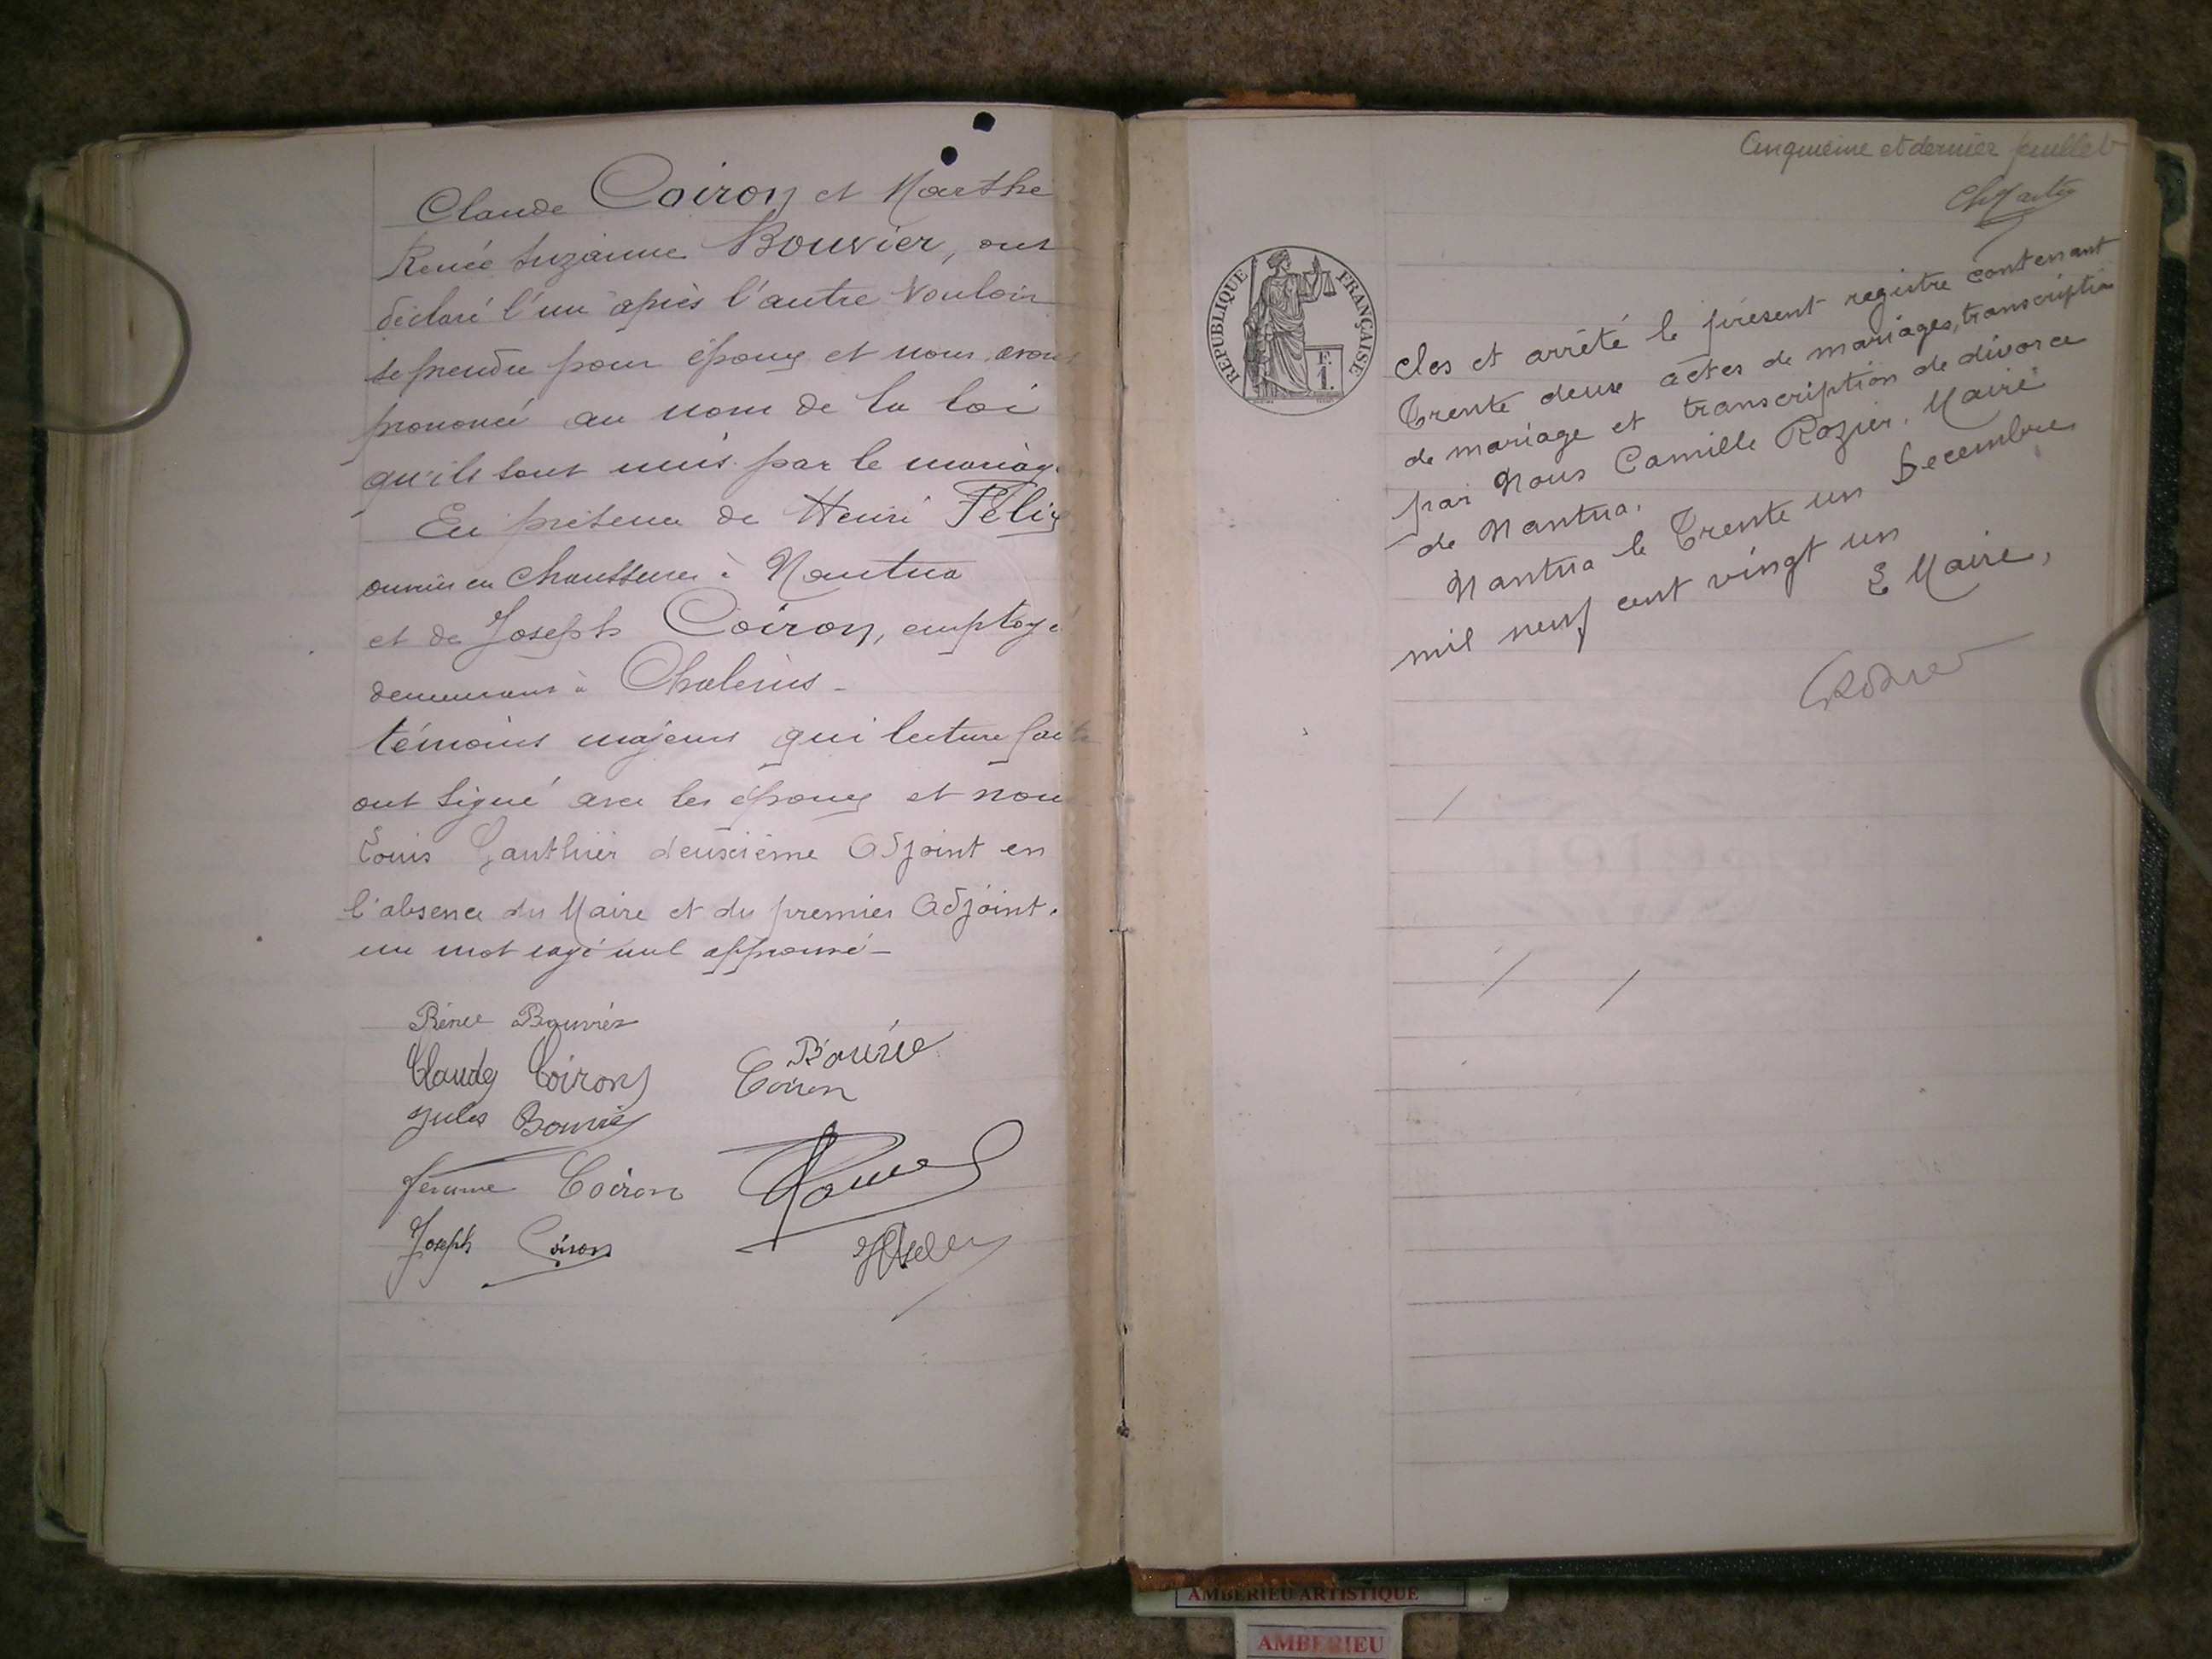 Claude Coiron et Marthe
Renée Suzanne Bouvier, ont
déclaré l'un après l'autre vouloir
se prendre pour époux et nous avons
prononcé au nom de la loi
qu'ils sont unis par le mariage
En présence de Henri Félix
ouvrier en chaussures à Nantua
et de Joseph Coiron, employé
demeurant à
témoins majeurs qui lecture faite
ont signé avec les époux et nous
Louis Gauthier deuxième Adjoint en
l'absence du Maire et du premier Adjoint.
un mot rayé nul approuvé -
Rénée Bouvier
Claude Coiron
Coiron
Jules Bouvier
Coiron
Joseph Coiron
Cinquième et dernier feuillet
RÉPUBLIQUE FRANÇAISE
F.
1.
Clos et arrêté le présent registre contenant
Trente deux actes de mariages, transcription
de mariage et transcription de divorce
par Nous Camille Rozier, Maire
de Nantua.
Nantua le Trente un Decembre
mil neuf cent vingt un
Le Maire,
AMBERIEU ARTISTIQUE
AMBERIEU